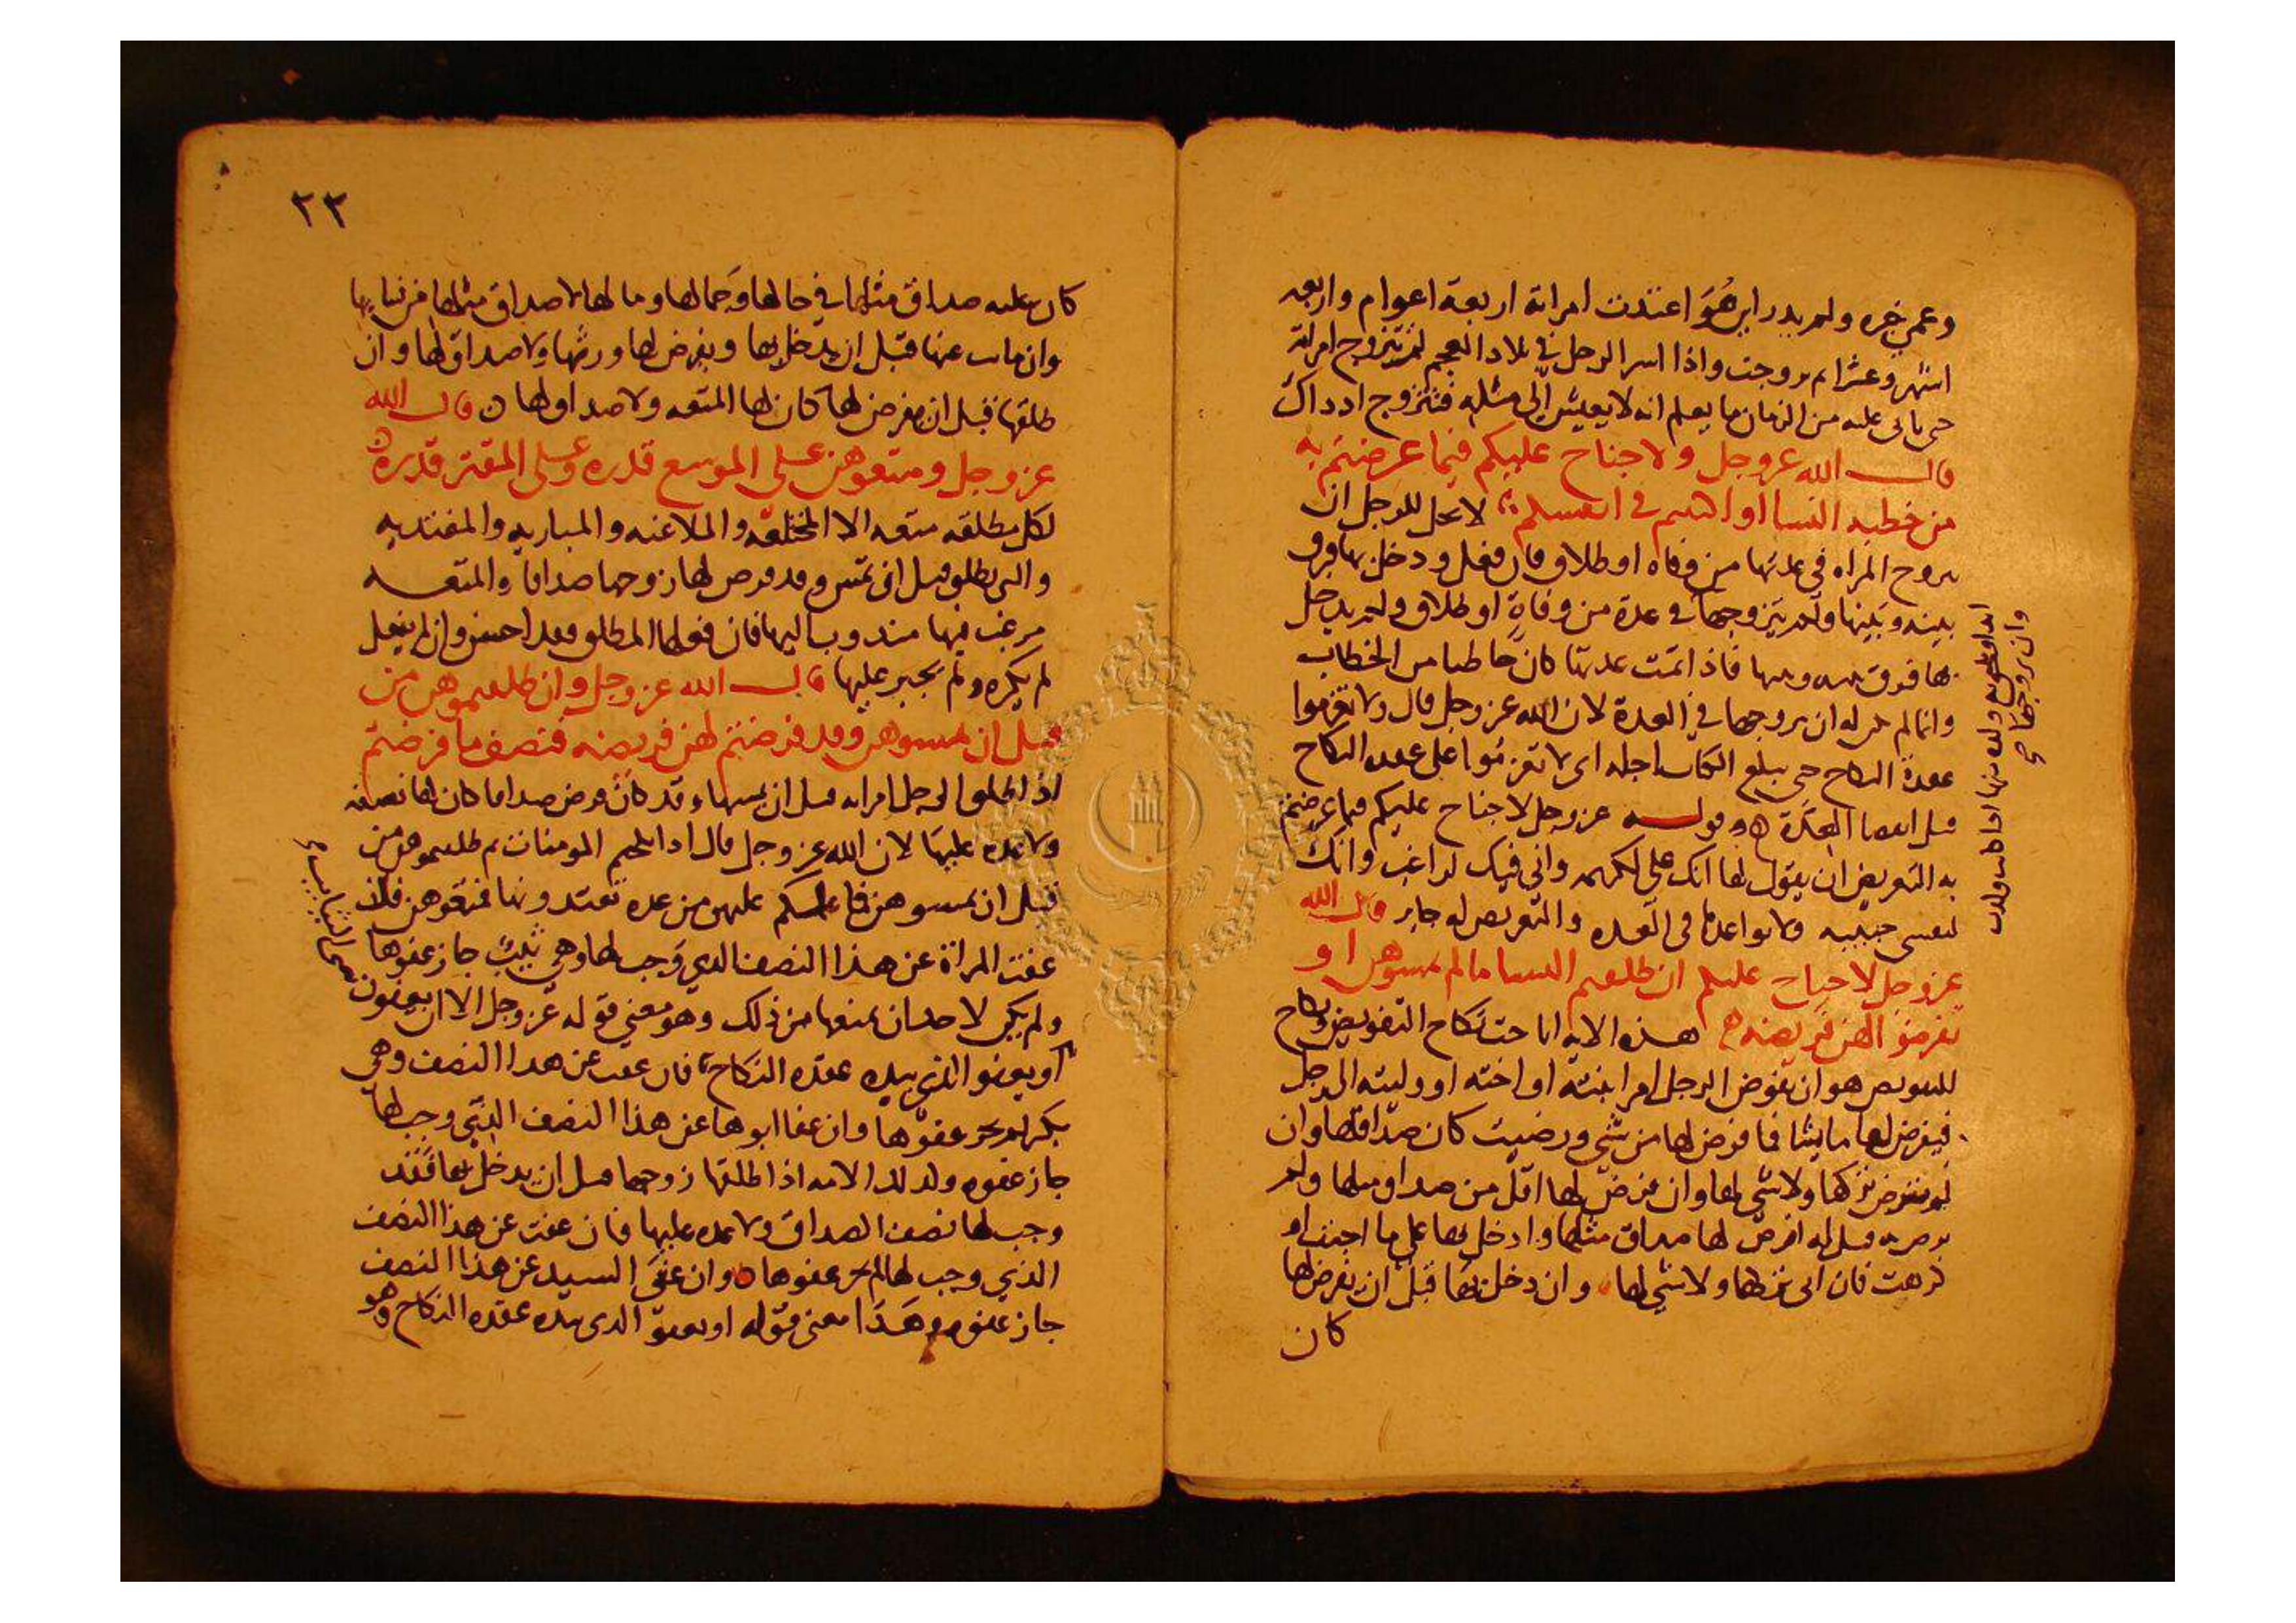 وعمي خبره ولم يدر اين هو اعتدت امراته اربعة اعوام واربعه
اشهر وعشرا ثم تزوجت واذا اسر الرجل في بلاد العجم لم تتزوج امراته
حتى ياتى عليه من الزمان ما يعلم انه لا يعيش الى مثله فتتزوج اذ ذاك
قال الله عز وجل ولا جناح عليكم فيما عرضتم به
من خطبه النسا او اكننتم في انفسكم لا يحل للرجل ان
يتزوج المراه في عدتها من وفاه او طلاق فان فعل ودخل بها فرق
بينه وبينها ولم يتزوجها في عدة من وفاة او طلاق ولم يدخل
بها فرق بينه وبينها فاذا اتمت عدتها كان خاطبا من الخطاب
وانما لم يحل له ان يتزوجها في العدة لان الله عز وجل قال ولا تعزموا
عقدة النكاح حتى يبلغ الكتاب اجله اى لا تعزموا على عقد النكاح
قبل انقضا العدة وقوله عز وجل لا جناح عليكم فيما عرضتم
به التعريض ان يقول لها انك علي لكريمه واني فيك لراغب وانك
لنفسي حبيبه ولا يواعدها في العده والتعريض له جايز قال الله
عز وجل لا جناح عليكم ان طلقتم النسا ما لم تمسوهن او
تفرضوا لهن فريضه هذه الايه اباحت نكاح التفويض ونكاح
التفويض هو ان يفوض الرجل امر ابنته او اخته او وليته الى رجل
فيفرض لها ما يشا فما فرض لها من شي ورضيت كان صداقها وان
لم يفرض تركها ولا شي لها وان فرض لها اقل من صداق مثلها ولم
ترض به قيل له افرض لها صداق مثلها وادخل بها على ما احبت او
كرهت فان ابى فرطها ولا شي لها وان دخل بها قبل ان يفرض لها
كان
وان تزوجها في
٢٣
كان عليه صداق مثلها في حالها وجمالها ومالها لا صداق مثلها من نسايها
وان مات عنها قبل ان يدخل بها ويفرض لها ورثها ولا صداق لها وان
طلقها قبل ان يفرض لها كان لها المتعه ولا صداق لها قال الله
عز وجل ومتعوهن على الموسع قدره وعلى المقتر قدره
لكل مطلقه متعه الا المختلعه والملاعنه والمباريه والمفتديه
والتى تطلق قبل ان تمس وقد فرض لها زوجها صداقا والمتعه
مرغب فيها مندوب اليها فان فعلها المطلق فقد احسن وان لم يفعل
لم يكره ولم يجبر عليها قال الله عز وجل وان طلقتموهن من
قبل ان تمسوهن وقد فرضتم لهن فريضه فنصف ما فرضتم
اذا طلق الرجل امراته قبل ان يمسها وقد كان فرض صداقا كان لها نصفه
ولا عده عليها لان الله عز وجل قال اذا نكحتم المومنات ثم طلقتموهن من
قبل ان تمسوهن فما لكم عليهن من عده تعتدونها فمتعوهن فلان
عفت المراة عن هذا النصف الذي وجب لها وهي ثيب جاز عفوها
ولم يكن لاحد ان يمنعها من ذلك وهو معنى قوله عز وجل الا ان يعفون
او يعفو الذي بيده عقده النكاح فان عفت عن هذا النصف وهي
بكر لم يجز عفوها وان عفا ابوها عن هذا النصف الذي وجب لها
جاز عفوه وكذلك الامه اذا طلقها زوجها قبل ان يدخل بها فقد
وجب لها نصف الصداق ولا عده عليها فان عفت عن هذا النصف
الذي وجب لها لم يجز عفوها وان عفى السيد عن هذا النصف
جاز عفوه وهذا معنى قوله او يعفو الذي بيده عقده النكاح وهو